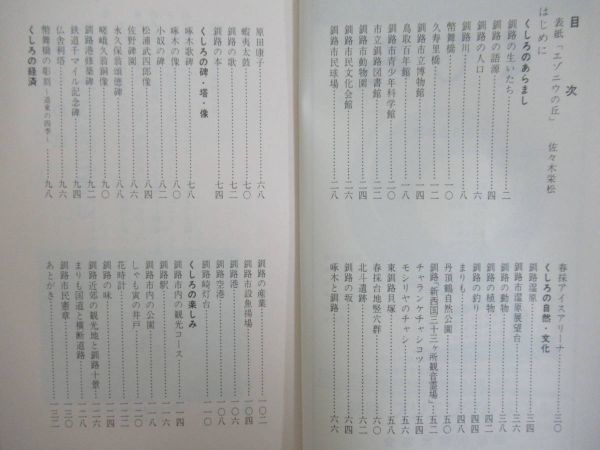 目　次
表紙「エゾニウの丘」　佐々木栄松
はじめに
くしろのあらまし
釧路の生いたち……二
釧路の語源……四
釧路の人口……六
釧路川……八
幣舞橋……一〇
久寿里橋……一二
釧路市立博物館……一四
鳥取百年館……一八
釧路市青少年科学館……二〇
市立釧路図書館……二二
釧路市動物園……二四
釧路市民文化会館……二六
釧路市民球場……二八
春採アイスアリーナ……三〇
くしろの自然・文化
釧路湿原……三四
釧路市湿原展望台……三六
釧路の動物……三八
釧路の植物……四〇
釧路の釣り……四四
まりも……四八
丹頂鶴自然公園……五〇
釧路「新西国三十三ヶ所観音霊場」……五二
チャランケチャシコツ……五四
モシリヤのチャシ……五六
東釧路貝塚……五八
春採台地竪穴群……六〇
北斗遺跡……六二
釧路の坂……六四
啄木と釧路……六六
原田康子……六八
蝦夷太鼓……七〇
釧路の歌……七二
釧路の本……七四
くしろの碑・塔・像
啄木歌碑……七八
啄木の像……八〇
小奴の碑……八二
松浦武四郎像……八四
佐野碑園……八六
永久保翁頌徳碑……八八
嵯峨久翁銅像……九〇
釧路港修築碑……九二
鉄道千マイル記念碑……九四
仏舎利塔……九六
幣舞橋の彫刻－道東の四季－……九八
くしろの経済
釧路の産業……一〇二
釧路市設魚揚場……一〇四
釧路港……一〇六
釧路空港……一〇八
釧路埼灯台……一一〇
くしろの楽しみ
釧路市内の観光コース……一一四
釧路駅……一一六
釧路市内の公園……一一八
しゃも寅の井戸……一二〇
花時計……一二二
釧路の味……一二四
釧路近郊の観光地と釧路十景……一二六
まりも国道と横断道路……一二八
釧路市民憲章……一三〇
あとがき……一三二